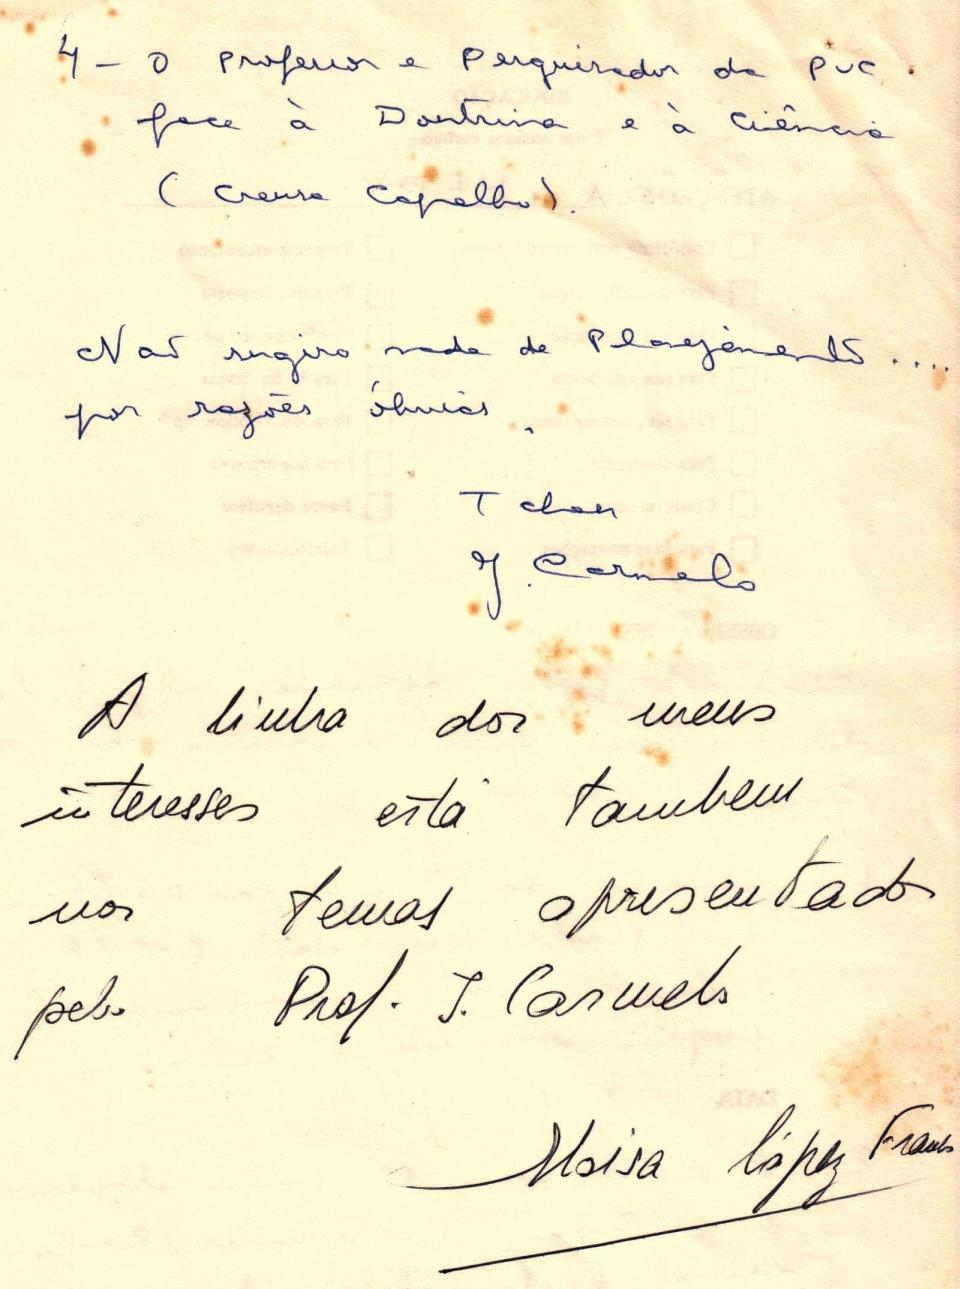 4 - O Professor e Pesquisador da PUC
face à Doutrina e à Ciência
(Creusa Capalbo).
Não sugiro nada de Planejamento ....
por razões óbvias.
Tchau
J. Carmelo
A linha dos meus
interesses está tambem
nos temas apresentados
pelo Prof. J. Carmelo
López Franco
EDUCAÇÃO
DATA